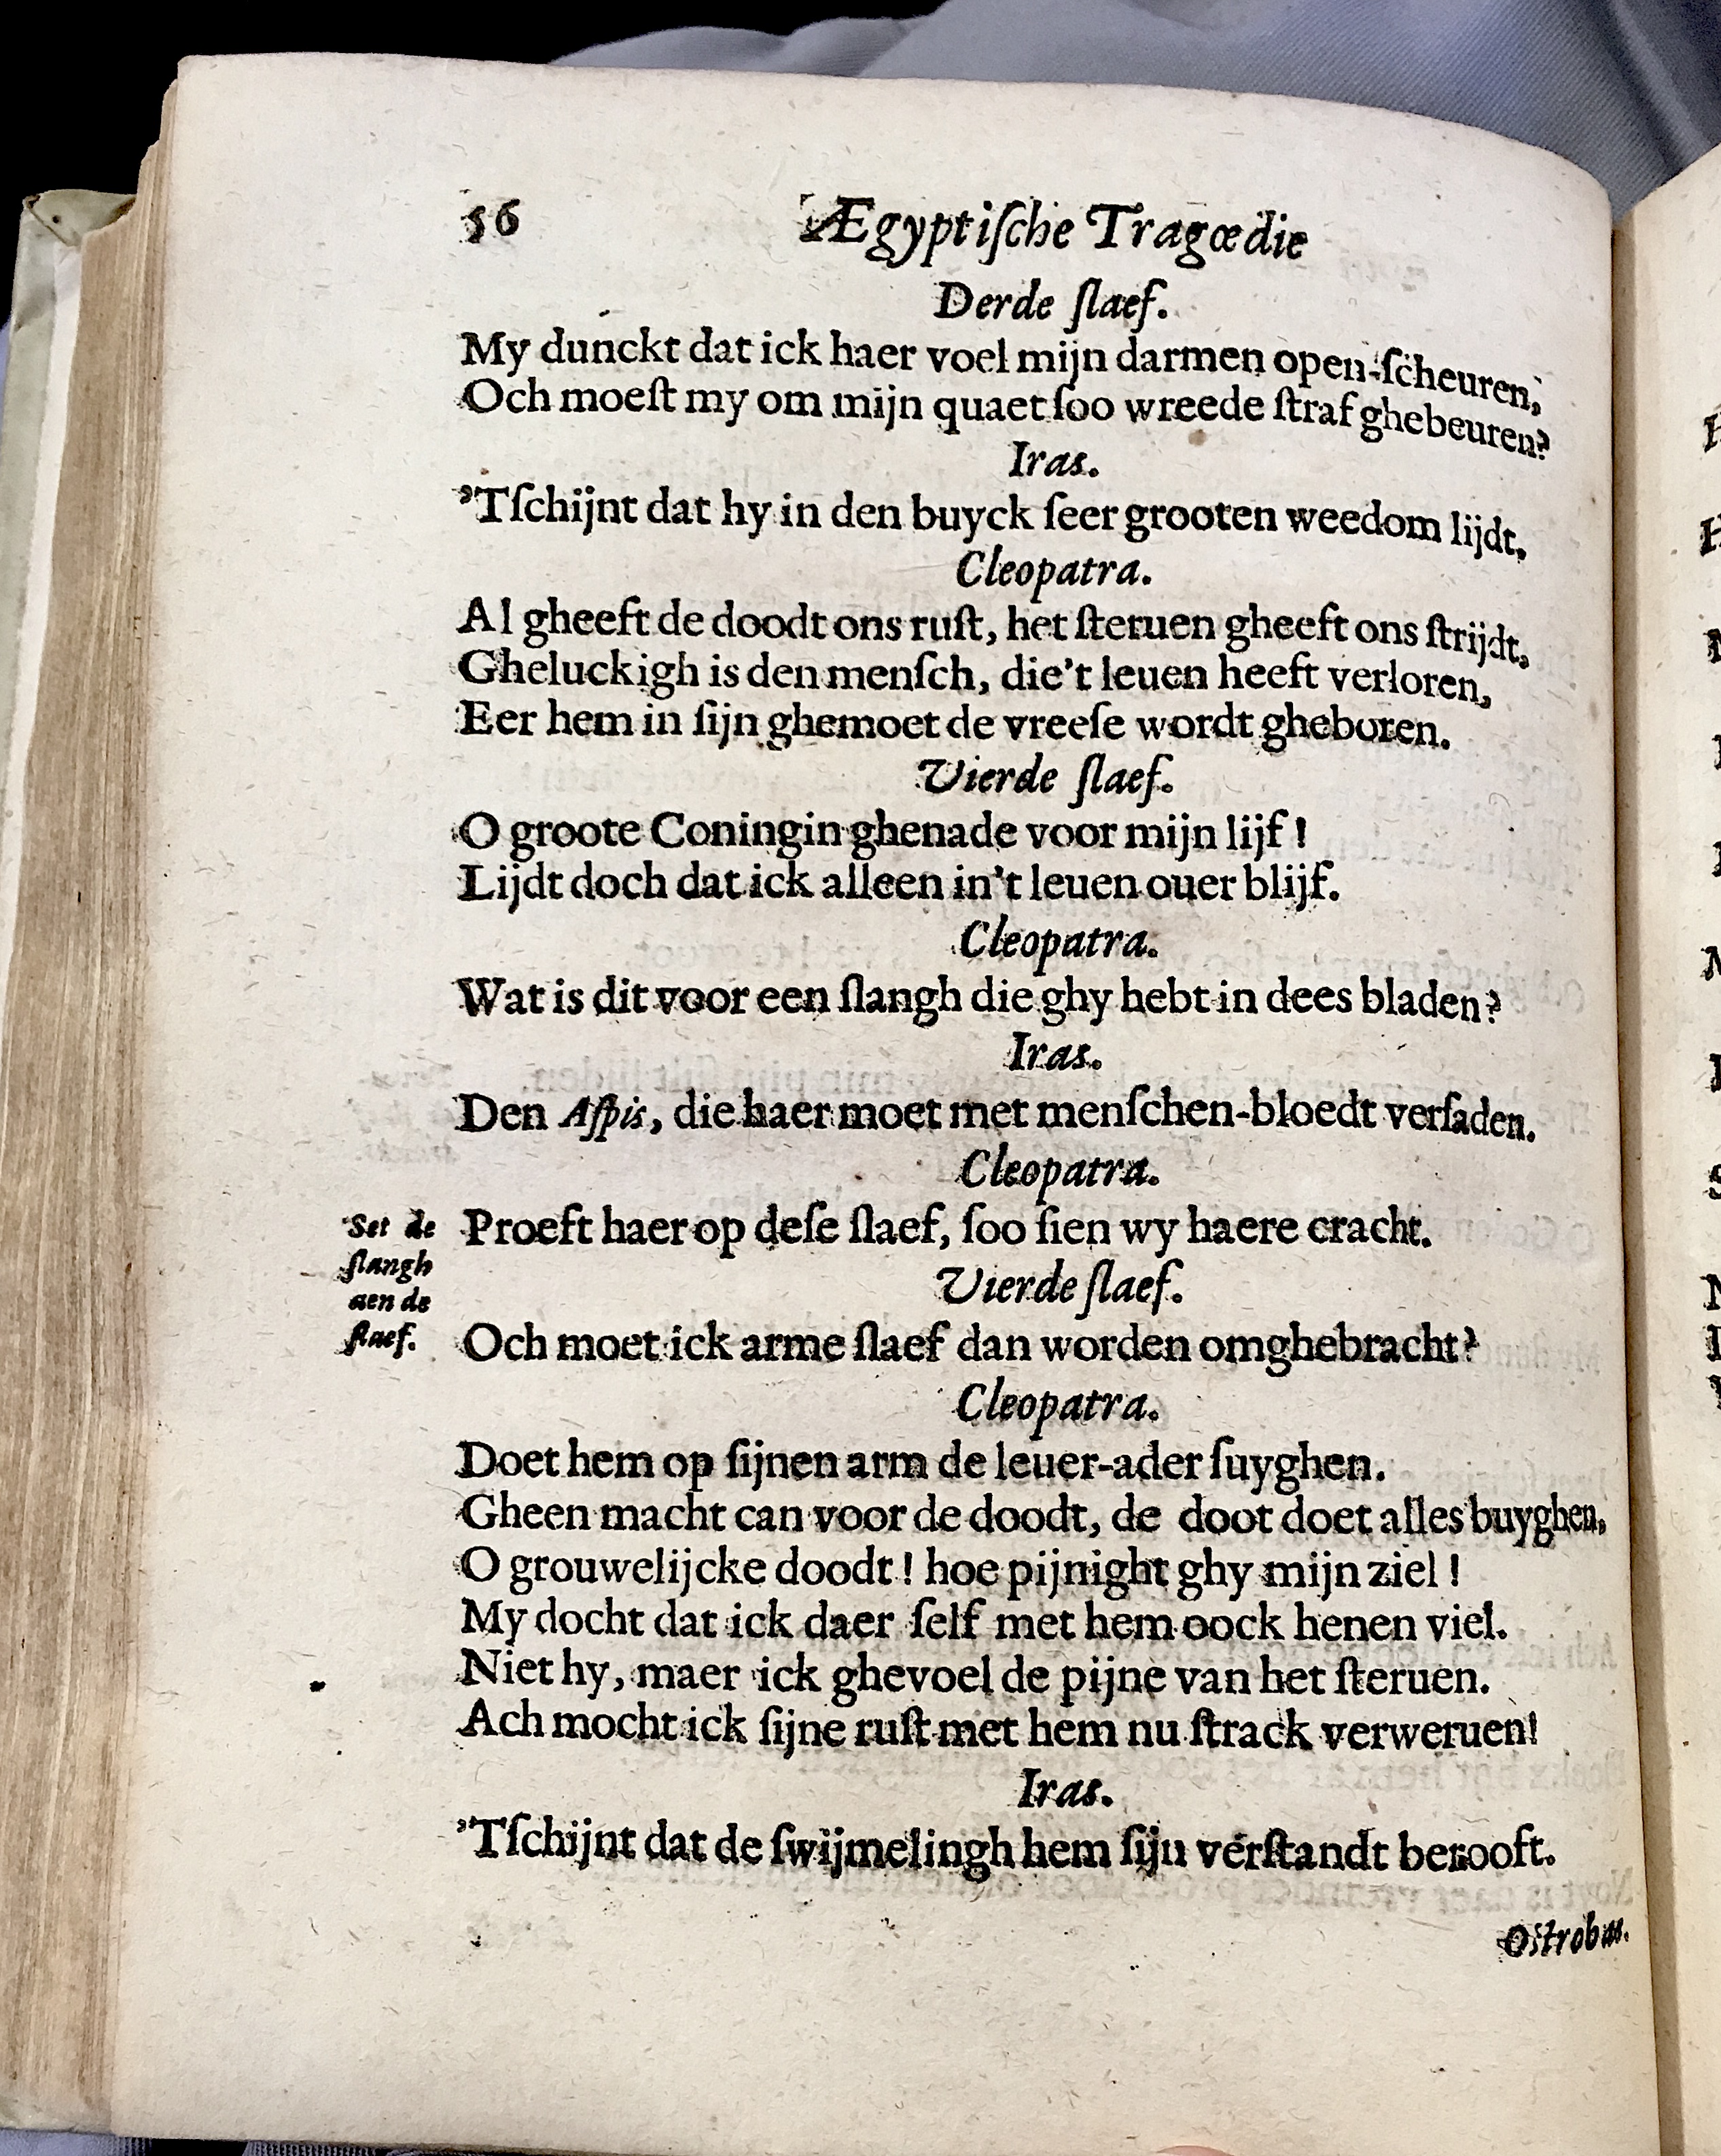 56 Ægyptiſche Tragœdie
Derde ſlaef.
My dunckt dat ick haer voel mijn darmen open-ſcheuren,
Och moeſt my om mijn quaet ſoo wreede ſtraf ghebeuren?
Iras.
'Tſchijnt dat hy in den buyck ſeer grooten weedom lijdt,
Cleopatra.
Al gheeft de doodt ons ruſt, het ſteruen gheeft ons ſtrijdt,
Gheluckigh is den menſch, die't leuen heeft verloren,
Eer hem in ſijn ghemoet de vreeſe wordt gheboren.
Vierde ſlaef.
O groote Coningin ghenade voor mijn lijf !
Lijdt doch dat ick alleen in't leuen ouer blijf.
Cleopatra.
Wat is dit voor een ſlangh die ghy hebt in dees bladen?
Iras.
Den Aſpis, die haer moet met menſchen-bloedt verſaden.
Cleopatra.
Proeft haer op deſe ſlaef, ſoo ſien wy haere cracht.
Set de
ſlangh
aen de
ſlaef.
Vierde ſlaef.
Och moet ick arme ſlaef dan worden omghebracht?
Cleopatra.
Doet hem op ſijnen arm de leuer-ader ſuyghen.
Gheen macht can voor de doodt, de doot doet alles buyghen,
O grouwelijcke doodt ! hoe pijnight ghy mijn ziel !
My docht dat ick daer ſelf met hem oock henen viel.
Niet hy, maer ick ghevoel de pijne van het ſteruen.
Ach mocht ick ſijne ruſt met hem nu ſtrack verweruen!
Iras.
'Tſchijnt dat de ſwijmelingh hem ſijn verſtandt berooft.
Oſtrobas.